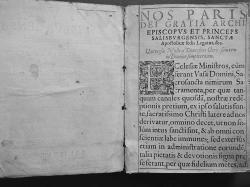 NOS PARIS
DEI GRATIA ARCHI
EPISCOPVS ET PRINCEPS
SALISBVRGENSIS, SANCTÆ
Apostolicæ sedis Legatus, &c.
Ecclesiæ Ministros, cùm
ferant Vasa Domini, Sa
crosancta nimirum Sa
cramenta, per quæ tan
quam canales quosdã, nostræ re
ptionis pretium, & ipso salutis
te, sacratissimo Christi latere ad nos
derivatur, omnino decet, ut non so
lùm intus sancti sint, & ab omni con
scientiæ labe immunes; sed exteriùs
etiam in administratione eorundẽ,
talia pietatis & devotionis signa præ
seferant, per quæ fidelium mores, ad